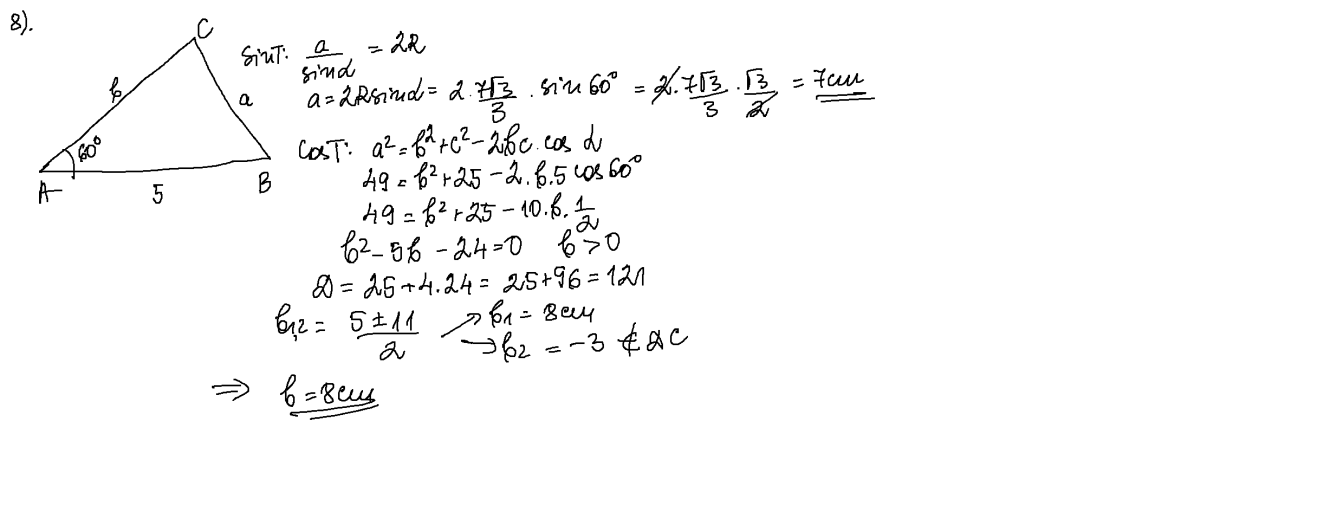 8).
C
b
a
60°
A
5
B
sinT: a/sinα = 2R
a = 2R sinα = 2 . 7√3/3 . sin 60° = 2 . 7√3/3 . √3/2 = 7cm
cosT: a² = b² + c² - 2bc . cos α
49 = b² + 25 - 2 . b . 5 cos 60°
49 = b² + 25 - 10 . b . 1/2
b² - 5b - 24 = 0 b > 0
D = 25 + 4 . 24 = 25 + 96 = 121
b1,2 = 5 ± 11 / 2
→ b1 = 8cm
→ b2 = -3 ∉ DC
⇒ b = 8cm